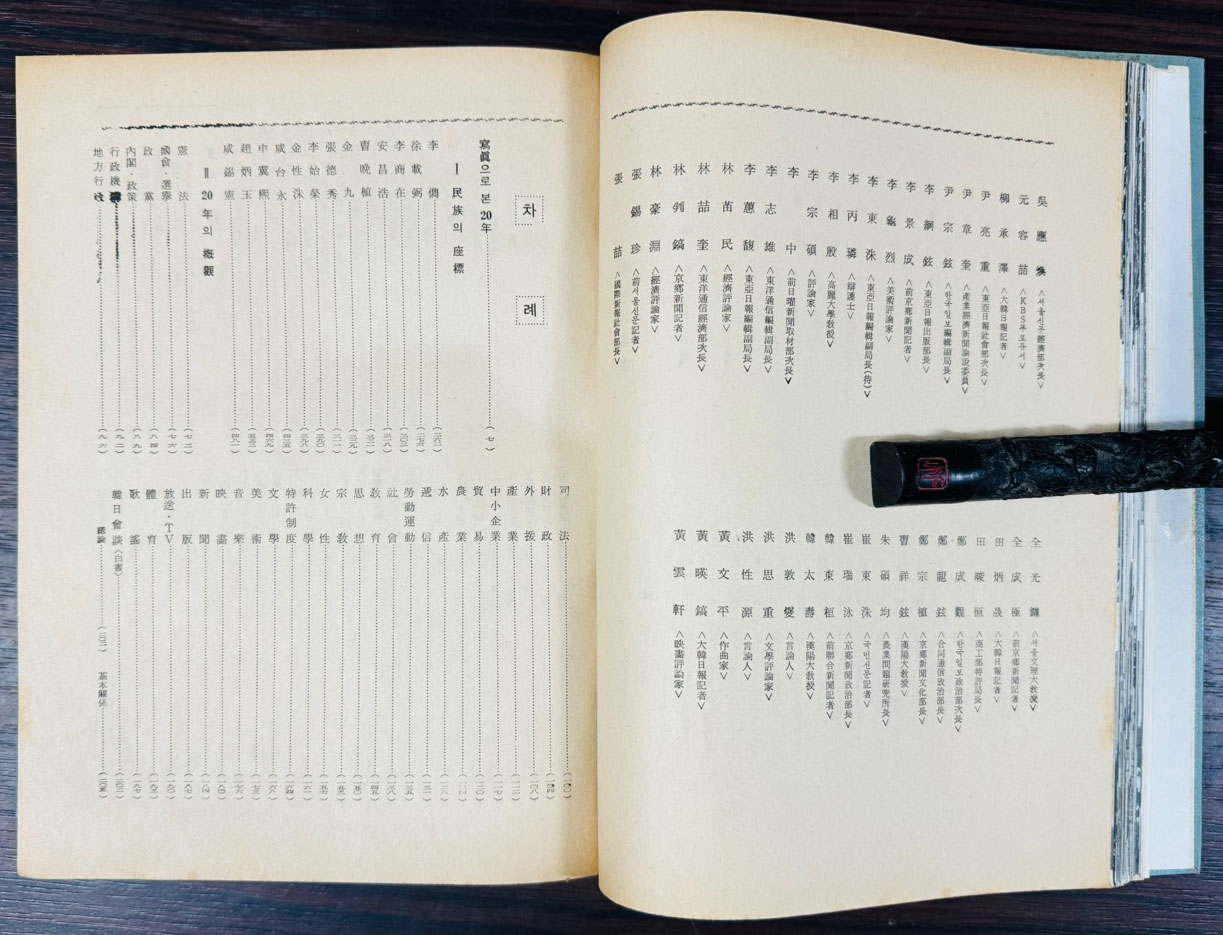 吳應煥 <서울신문經濟部次長>
元容喆
柳承澤 <大韓日報記者>
尹亮重 <東亞日報社會部次長>
尹章奎 <產業經濟新聞論設委員>
尹宗鉉 <한국일보編輯副局長>
李綱鉉 <東亞日報出版部長>
李景成 <前京鄉新聞記者>
李龜烈 <美術評論家>
李東洙 <東亞日報編輯副局長(待)>
李丙璘 <辯護士>
李相殷 <高麗大學敎授>
李宗碩 <評論家>
李中 <前日曜新聞取材部次長>
李志雄 <東洋通信編輯副局長>
李蕙馥 <東亞日報編輯副局長>
林苗民 <經濟評論家>
林喆奎 <東洋通信經濟部次長>
林鎬 <京鄉新聞記者>
林豪淵 <經濟評論家>
張錫珍 <前서울신문記者>
張喆 <國際新報社會部長>
全光鏞 <서울文理大敎授>
全成極 <前京鄉新聞記者>
田炳晟 <大韓日報記者>
田畯恒 <商工部特許局長>
鄭成觀 <한국일보政治部次長>
鄭龍鉉 <合同通信政治部長>
鄭宗植 <京鄉新聞文化部長>
曺祥鉉 <漢陽大敎授>
朱碩均 <農業問題硏究所長>
崔東洙 <국민신문記者>
崔瑞泳 <京鄉新聞政治部長>
韓東桓 <前聯合新聞記者>
韓太壽 <漢陽大敎授>
洪敦燮 <言論人>
洪思重 <文學評論家>
洪性源 <言論人>
黃文平 <作曲家>
黃暎鎬 <大韓日報記者>
黃雲軒 <映畵評論家>
차 례
寫眞으로 본 20年 (七)
Ⅰ 民族의 座標
李儁
徐載弼
李商在
安昌浩
曺晩植
金九
張德秀
李始榮
金性洙
咸台永
申翼熙
趙炳玉
咸錫憲
Ⅱ 20年의 槪觀
憲法 (七二)
國會·選擧 (七六)
政黨 (八四)
內閣·政策 (八九)
行政機構 (九二)
地方行政 (九六)
司法 (一〇〇)
財政 (一〇四)
外援 (一〇八)
產業 (一一二)
中小企業 (一一七)
貿易 (一二〇)
農業
水產
遞信
勞動運動
社會
敎育
思想
宗敎
女性
科學
特許制度
文學
美術
音樂
映畵
新聞
出版
放送·TV
體育
歌謠
韓日會談 <白書>
總論
基本關係